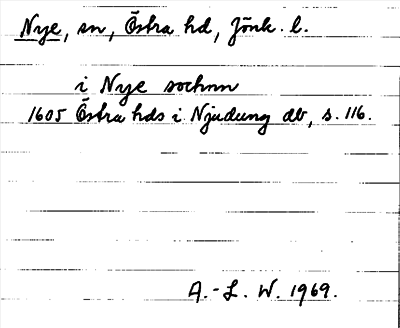 Nye, sn, Östra hd, Jönk. l.
i Nye socknn
1605 Östra hds i Njudung db, s. 116.
A.-L. W. 1969.